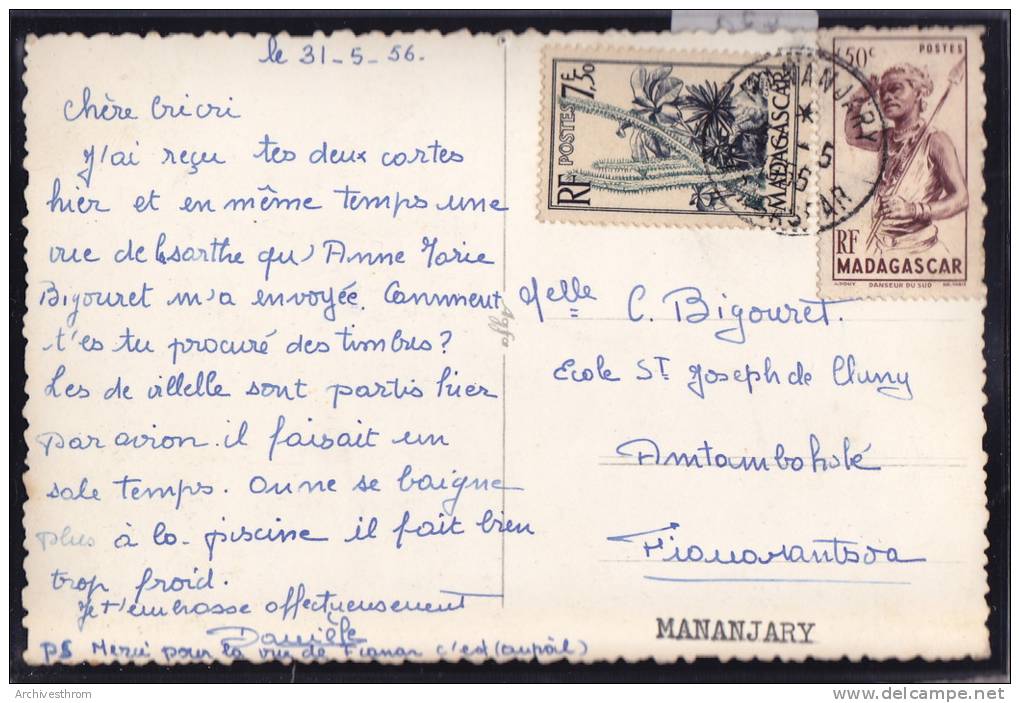 le 31-5-56.
chère Cricri
J'ai reçu tes deux cartes
hier et en même temps une
vue de la sarthe qu'Anne Marie
Bigouret m'a envoyée. Comment
t'es tu procuré des timbres?
Les de villelle sont partis hier
par avion. il faisait un
sale temps. On ne se baigne
plus à la piscine il fait bien
trop froid.
Je t'embrasse affectueusement
Danièle
PS Merci pour la vue de Fianar c'est (au poil)
Agfa
POSTES 7F,50
RF MADAGASCAR
MANANJARY
50c POSTES
RF
MADAGASCAR
DANSEUR DU SUD
Melle C. Bigouret.
Ecole St Joseph de Cluny
Ambatobohobé
Fianarantsoa
MANANJARY
Archivesthrom
delcampe.net